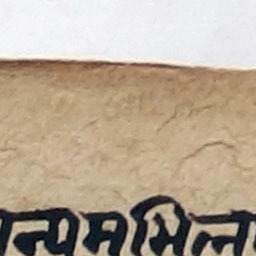 न्यमभिल